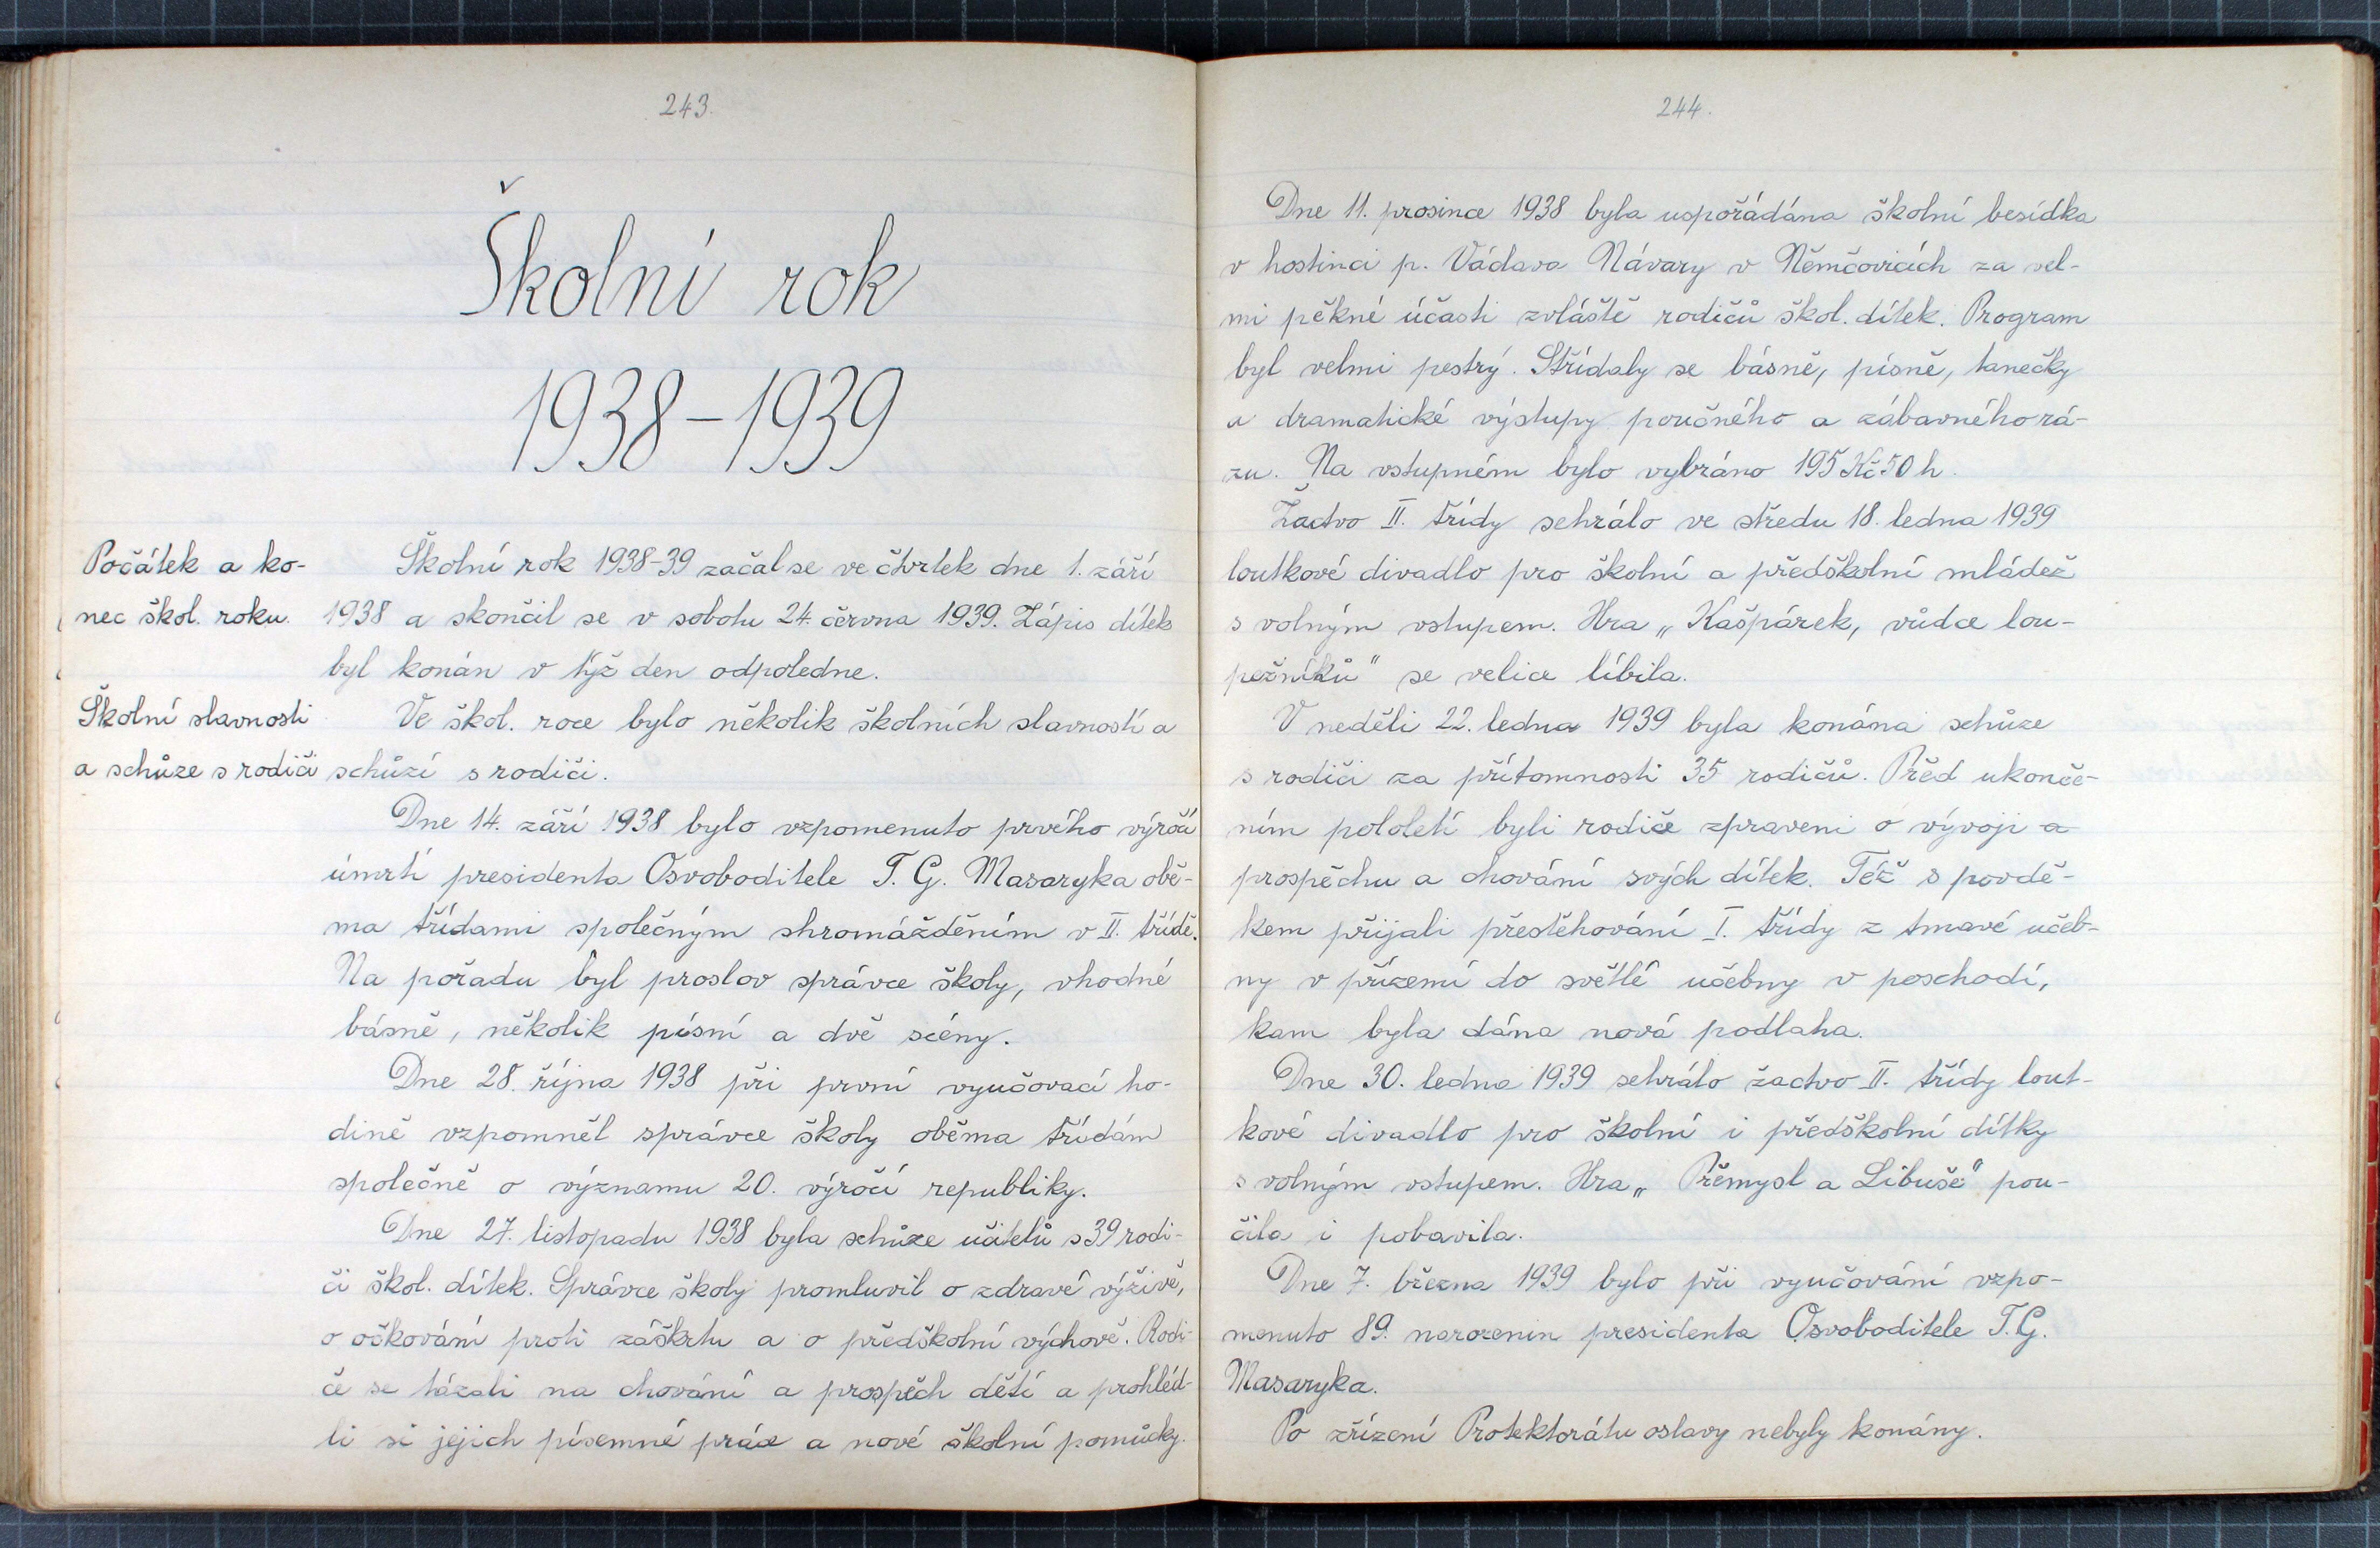 243.
Školní rok
1938-1939
Počátek a ko-
nec škol. roku.
Školní rok 1938-39 začal se ve čtvrtek dne 1. září
1938 a skončil se v sobotu 24. června 1939. Zápis dítek
byl konán v týž den odpoledne.
Školní slavnosti
a schůze s rodiči
Ve škol. roce bylo několik školních slavností a
schůzí s rodiči.
Dne 14. září 1938 bylo vzpomenuto prvého výročí
úmrtí presidenta Osvoboditele T. G. Masaryka obě-
ma třídami společným shromážděním v II. třídě.
Na pořadu byl proslov správce školy, vhodné
básně, několik písní a dvě scény.
Dne 28. října 1938 při první vyučovací ho-
dině vzpomněl správce školy oběma třídám
společně o významu 20. výročí republiky.
Dne 27. listopadu 1938 byla schůze učitelů s 39 rodi-
či škol. dítek. Správce školy promluvil o zdravé výživě,
o očkování proti záškrtu a o předškolní výchově. Rodi-
če se tázali na chování a prospěch dětí a prohléd-
li si jejich písemné práce a nové školní pomůcky.
244.
Dne 11. prosince 1938 byla uspořádána školní besídka
v hostinci p. Václava Návary v Němčovicích za vel-
mi pěkné účasti zvláště rodičů škol. dítek. Program
byl velmi pestrý. Střídaly se básně, písně, tanečky
a dramatické výstupy poučného a zábavného rá-
zu. Na vstupném bylo vybráno 195 Kč 50 h.
Žactvo II. třídy sehrálo ve středu 18. ledna 1939
loutkové divadlo pro školní a předškolní mládež
s volným vstupem. Hra „Kašpárek, vůdce lou-
pežníků" se velice líbila.
V neděli 22. ledna 1939 byla konána schůze
s rodiči za přítomnosti 35 rodičů. Před ukonče-
ním pololetí byli rodiče zpraveni o vývoji a
prospěchu a chování svých dítek. Též s povdě-
kem přijali přestěhování I. třídy z tmavé učeb-
ny v přízemí do světlé učebny v poschodí,
kam byla dána nová podlaha.
Dne 30. ledna 1939 sehrálo žactvo II. třídy lout-
kové divadlo pro školní i předškolní dítky
s volným vstupem. Hra „Přemysl a Libuše" pou-
čila i pobavila.
Dne 7. března 1939 bylo při vyučování vzpo-
menuto 89. narozenin presidenta Osvoboditele T. G.
Masaryka.
Po zřízení Protektorátu oslavy nebyly konány.